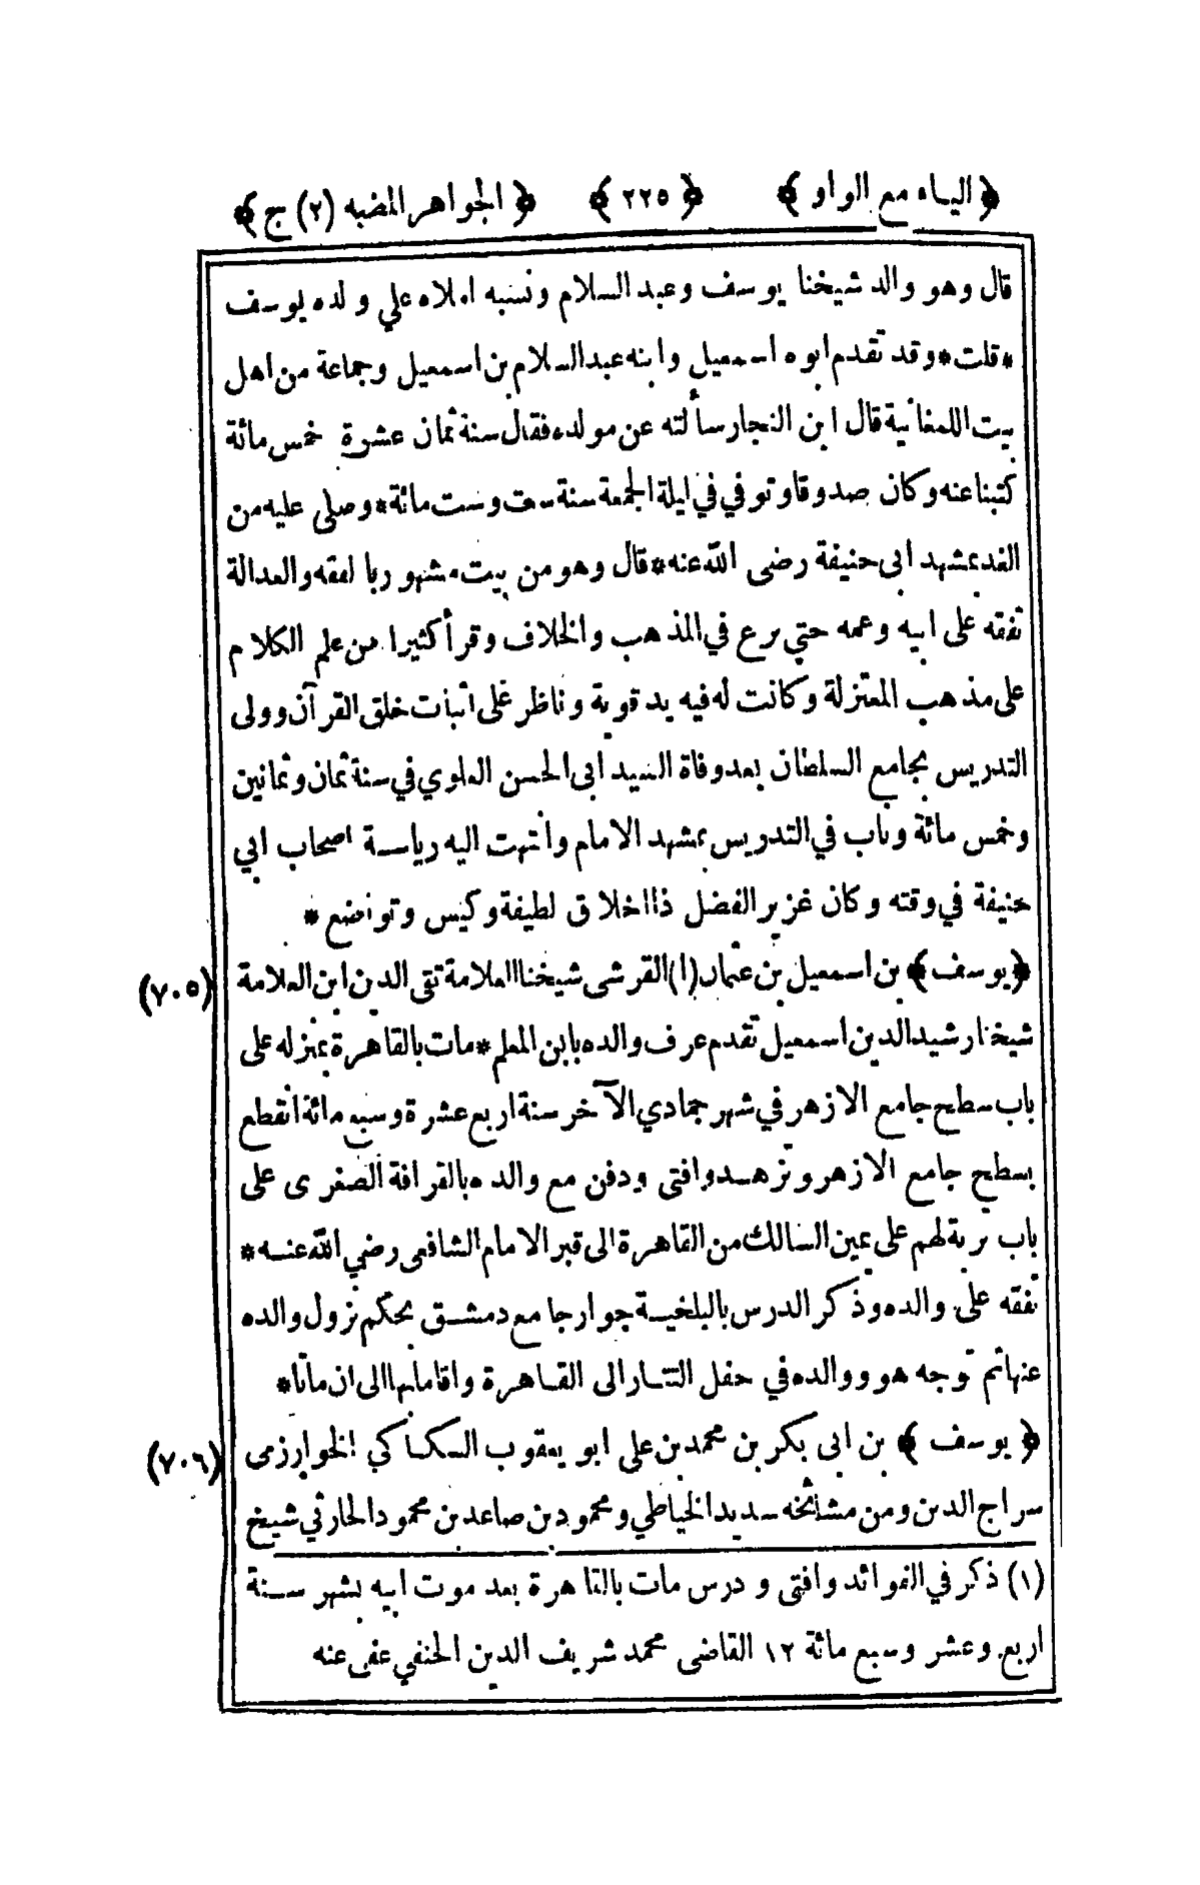 ﴿ الياء مع الواو ﴾ ﴿ ٢٢٥ ﴾ ﴿ الجواهر المضيه (٢) ج ﴾
قال وهو والد شيخنا يوسف وعبد السلام ونسبه املاه علي ولده يوسف
*قلت* وقد تقدم ابوه اسمعيل وابنه عبد السلام بن اسمعيل وجماعة من اهل
بيت اللمغانية قال ابن النجار سألته عن مولده فقال سنة ثمان عشرة خمس مائة
كتبنا عنه وكان صدوقا وتوفي في ليلة الجمعة سنة ست وست مائة* وصلى عليه من
الغد بمشهد ابى حنيفة رضى الله عنه* قال وهو من بيت مشهور بالفقه والعدالة
تفقه على ابيه وعمه حتي برع في المذهب والخلاف وقرأ كثيرا من علم الكلام
على مذهب المعتزلة وكانت له فيه يد قوية وناظر على اثبات خلق القرآن وولى
التدريس بجامع السلطان بعد وفاة السيد ابى الحسن العلوي في سنة ثمان وثمانين
وخمس مائة وناب في التدريس بمشهد الامام وانتهت اليه رياسة اصحاب ابي
حنيفة في وقته وكان غزير الفضل ذا اخلاق لطيفة وكيس وتواضع *
﴿ يوسف ﴾ بن اسمعيل بن عثمان (١) القرشى شيخنا العلامة تقى الدين ابن العلامة (٧٠٥)
شيخنا رشيد الدين اسمعيل تقدم عرف والده بابن المعلم* مات بالقاهرة بمنزله على
باب سطح جامع الازهر في شهر جمادي الآخر سنة اربع عشرة وسبع مائة انقطع
بسطح جامع الازهر وتزهد وافتى ودفن مع والده بالقرافة الصغرى على
باب تربة لهم على يمين السالك من القاهرة الى قبر الامام الشافعى رضي الله عنه*
تفقه على والده وذكر الدرس بالبلخية جوار جامع دمشق بحكم نزول والده
عنها ثم توجه هو ووالده في حفل التتار الى القاهرة واقاما بها الى ان ماتا*
﴿ يوسف ﴾ بن ابى بكر بن محمد بن على ابو يعقوب السكاكي الخوارزمى (٧٠٦)
سراج الدين ومن مشائخه سديد الخياطي ومحمود بن صاعد بن محمود الحارثي شيخ
(١) ذكر في الفوائد وافتى و درس مات بالقاهرة بعد موت ابيه بشهر سنة
اربع وعشر وسبع مائة ١٢ القاضى محمد شريف الدين الحنفي عفى عنه